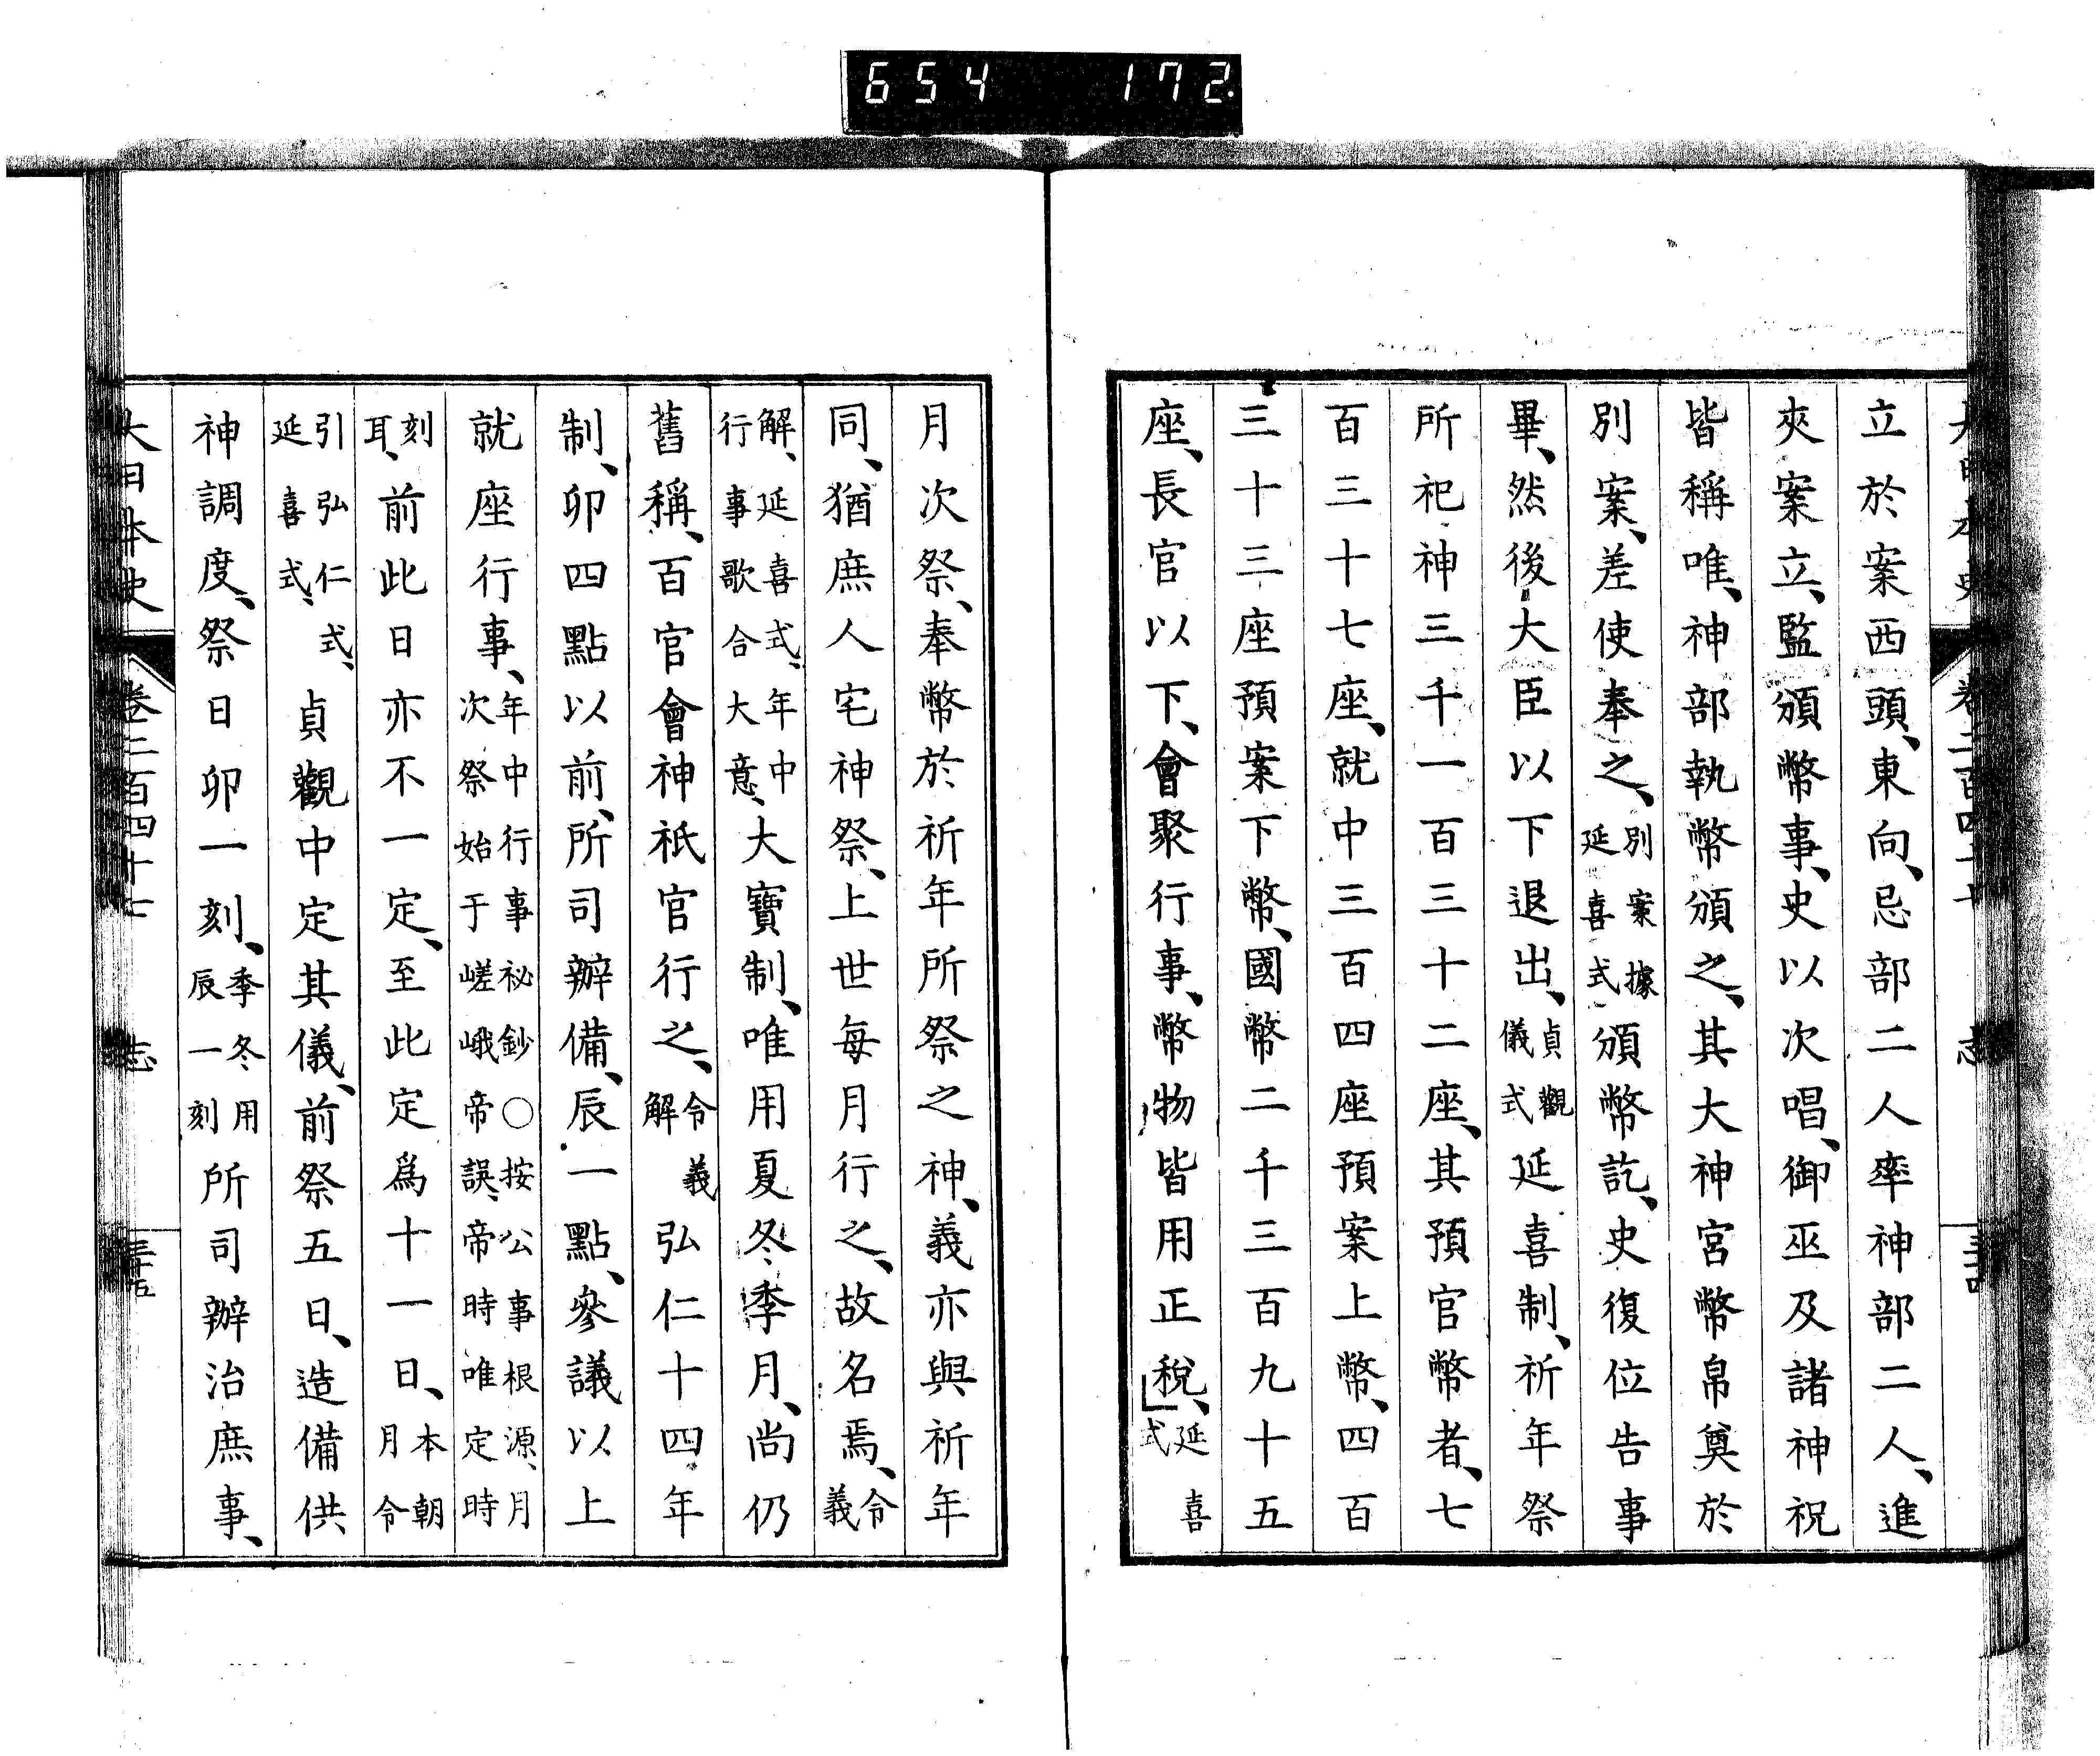 654 172
立於案西頭、東向、忌部二人率神部二人、進
夾案立、監頒幣事、史以次唱、御巫及諸神祝
皆稱唯、神部執幣頒之、其大神宮幣帛奠於
別案、差使奉之、別案據延喜式頒幣訖、史復位告事
畢、然後大臣以下退出、貞觀儀式延喜制、祈年祭
所祀神三千一百三十二座、其預官幣者、七
百三十七座、就中三百四座預案上幣、四百
三十三座預案下幣、國幣二千三百九十五
座、長官以下、會聚行事、幣物皆用正稅、延喜式
月次祭、奉幣於祈年所祭之神、義亦與祈年
同、猶庶人宅神祭、上世每月行之、故名焉、令義
解、延喜式、年中行事歌合大意、大寶制、唯用夏冬季月、尚仍
舊稱、百官會神祇官行之、令義解弘仁十四年
制、卯四點以前、所司辦備、辰一點、參議以上
就座行事、年中行事祕鈔○按公事根源、月次祭始于嵯峨帝誤、帝時唯定時
刻耳、前此日亦不一定、至此定爲十一日、本朝月令
引弘仁式、延喜式、貞觀中定其儀、前祭五日、造備供
神調度、祭日卯一刻、季冬用辰一刻所司辦治庶事、
大日本史 卷二百四十七 志